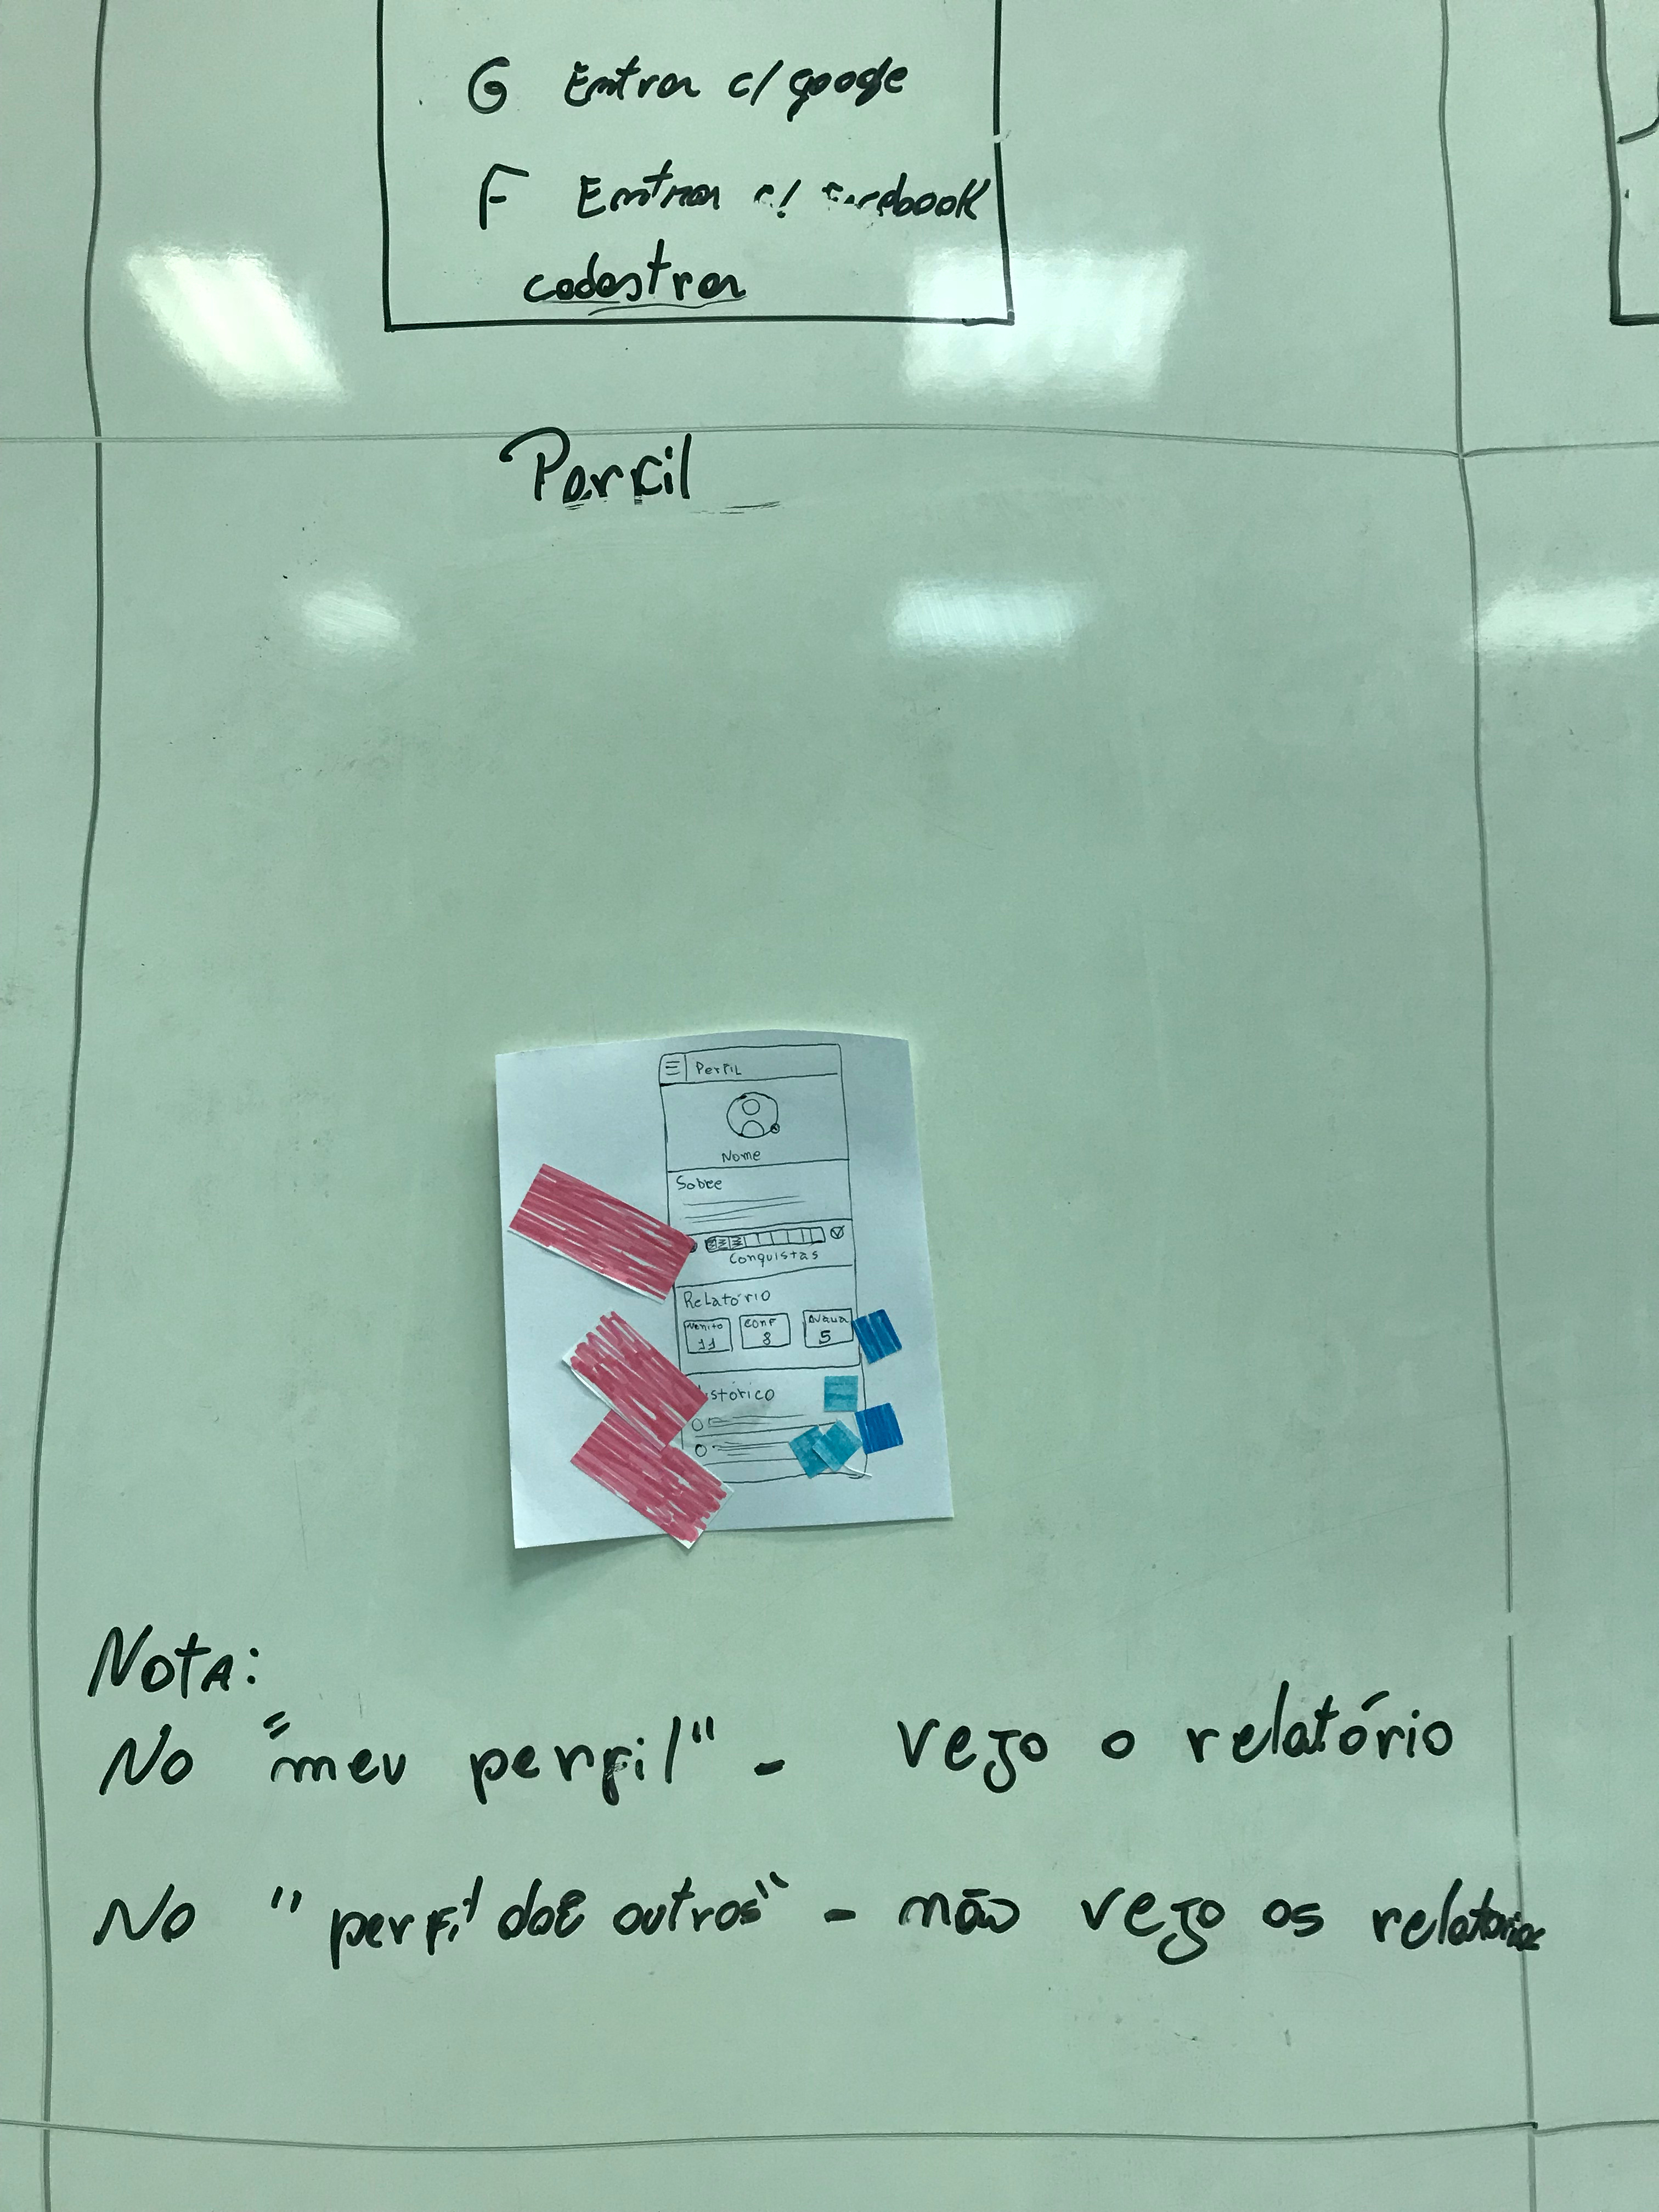 G Entrar c/ google
F Entrar c/ facebook
cadastrar
Perfil
Perfil
Nome
Sobre
Conquistas
Relatório
conf
11
8
5
Histórico
Nota:
No "meu perfil" - vejo o relatório
No "perfil dos outros" - não vejo os relatorios